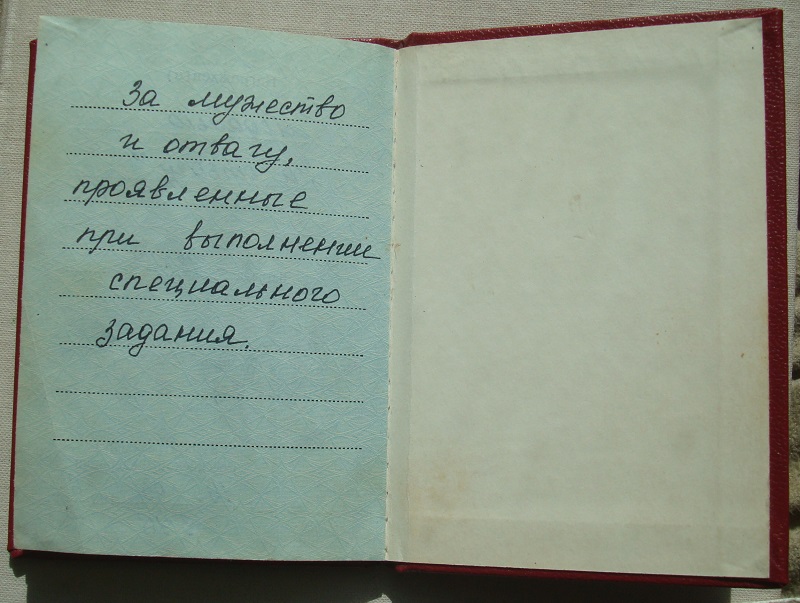 За мужество
и отвагу,
проявленные
при выполнении
специального
задания.